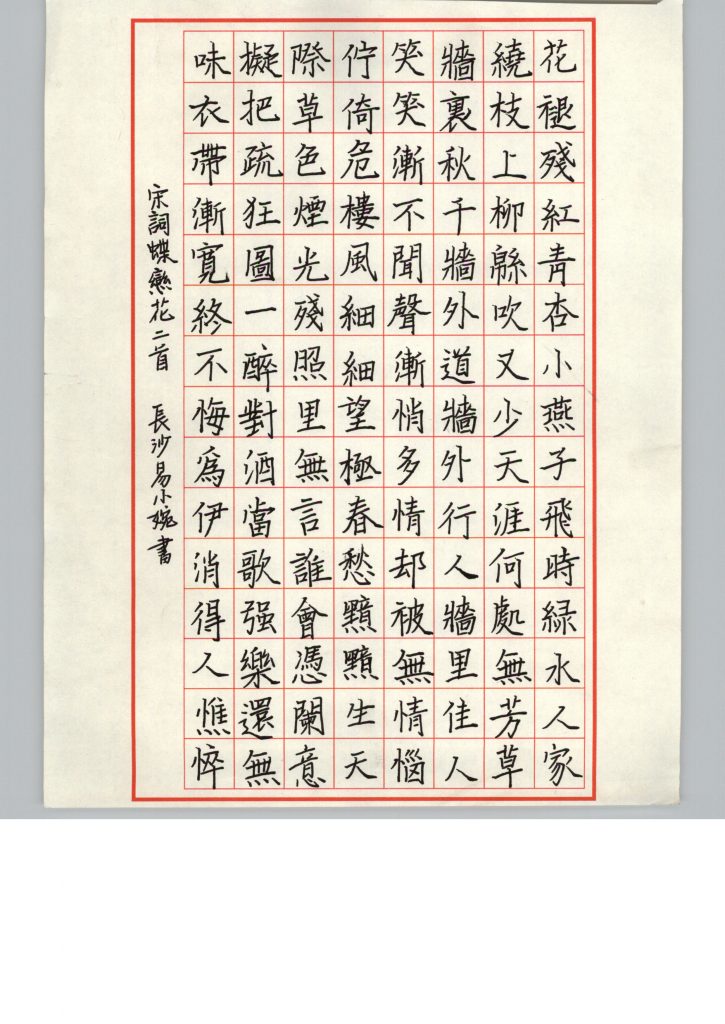 花褪殘紅青杏小燕子飛時緑水人家
繞枝上柳緜吹又少天涯何處無芳草
牆裏秋千牆外道牆外行人牆里佳人
笑笑漸不聞聲漸悄多情却被無情惱
佇倚危樓風細細望極春愁黯黯生天
際草色煙光殘照里無言誰會憑闌意
擬把疏狂圖一醉對酒當歌强樂還無
味衣帶漸寬終不悔爲伊消得人憔悴
宋詞蝶戀花二首 長沙易小婉書